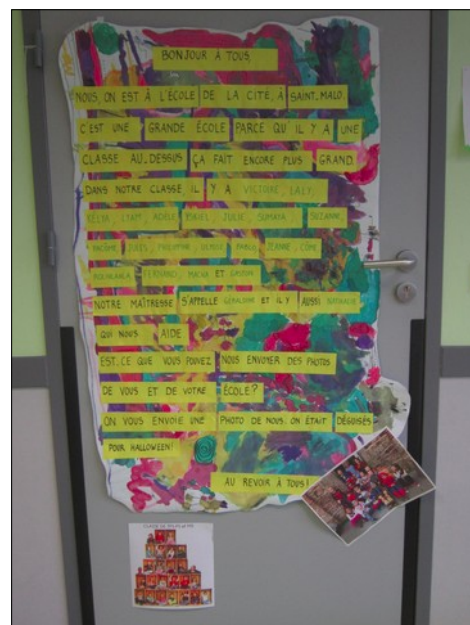 BONJOUR À TOUS,
NOUS, ON EST À L'ÉCOLE DE LA CITÉ, À SAINT-MALO.
C'EST UNE GRANDE ÉCOLE PARCE QU'IL Y A UNE
CLASSE AU-DESSUS ÇA FAIT ENCORE PLUS GRAND.
DANS NOTRE CLASSE, IL Y A VICTOIRE, LALY,
LYAM, ADÈLE, JULIE, SUMAYA, SUZANNE,
JULES, PABLO, JEANNE, CÔME
FERNAND, ET
NOTRE MAÎTRESSE S'APPELLE GÉRALDINE ET IL Y AUSSI NATHALIE
QUI NOUS AIDE
EST-CE QUE VOUS POUVEZ NOUS ENVOYER DES PHOTOS
DE VOUS ET DE VOTRE ÉCOLE?
ON VOUS ENVOIE UNE PHOTO DE NOUS. ON ÉTAIT DÉGUISÉS
POUR HALLOWEEN!
AU REVOIR À TOUS!